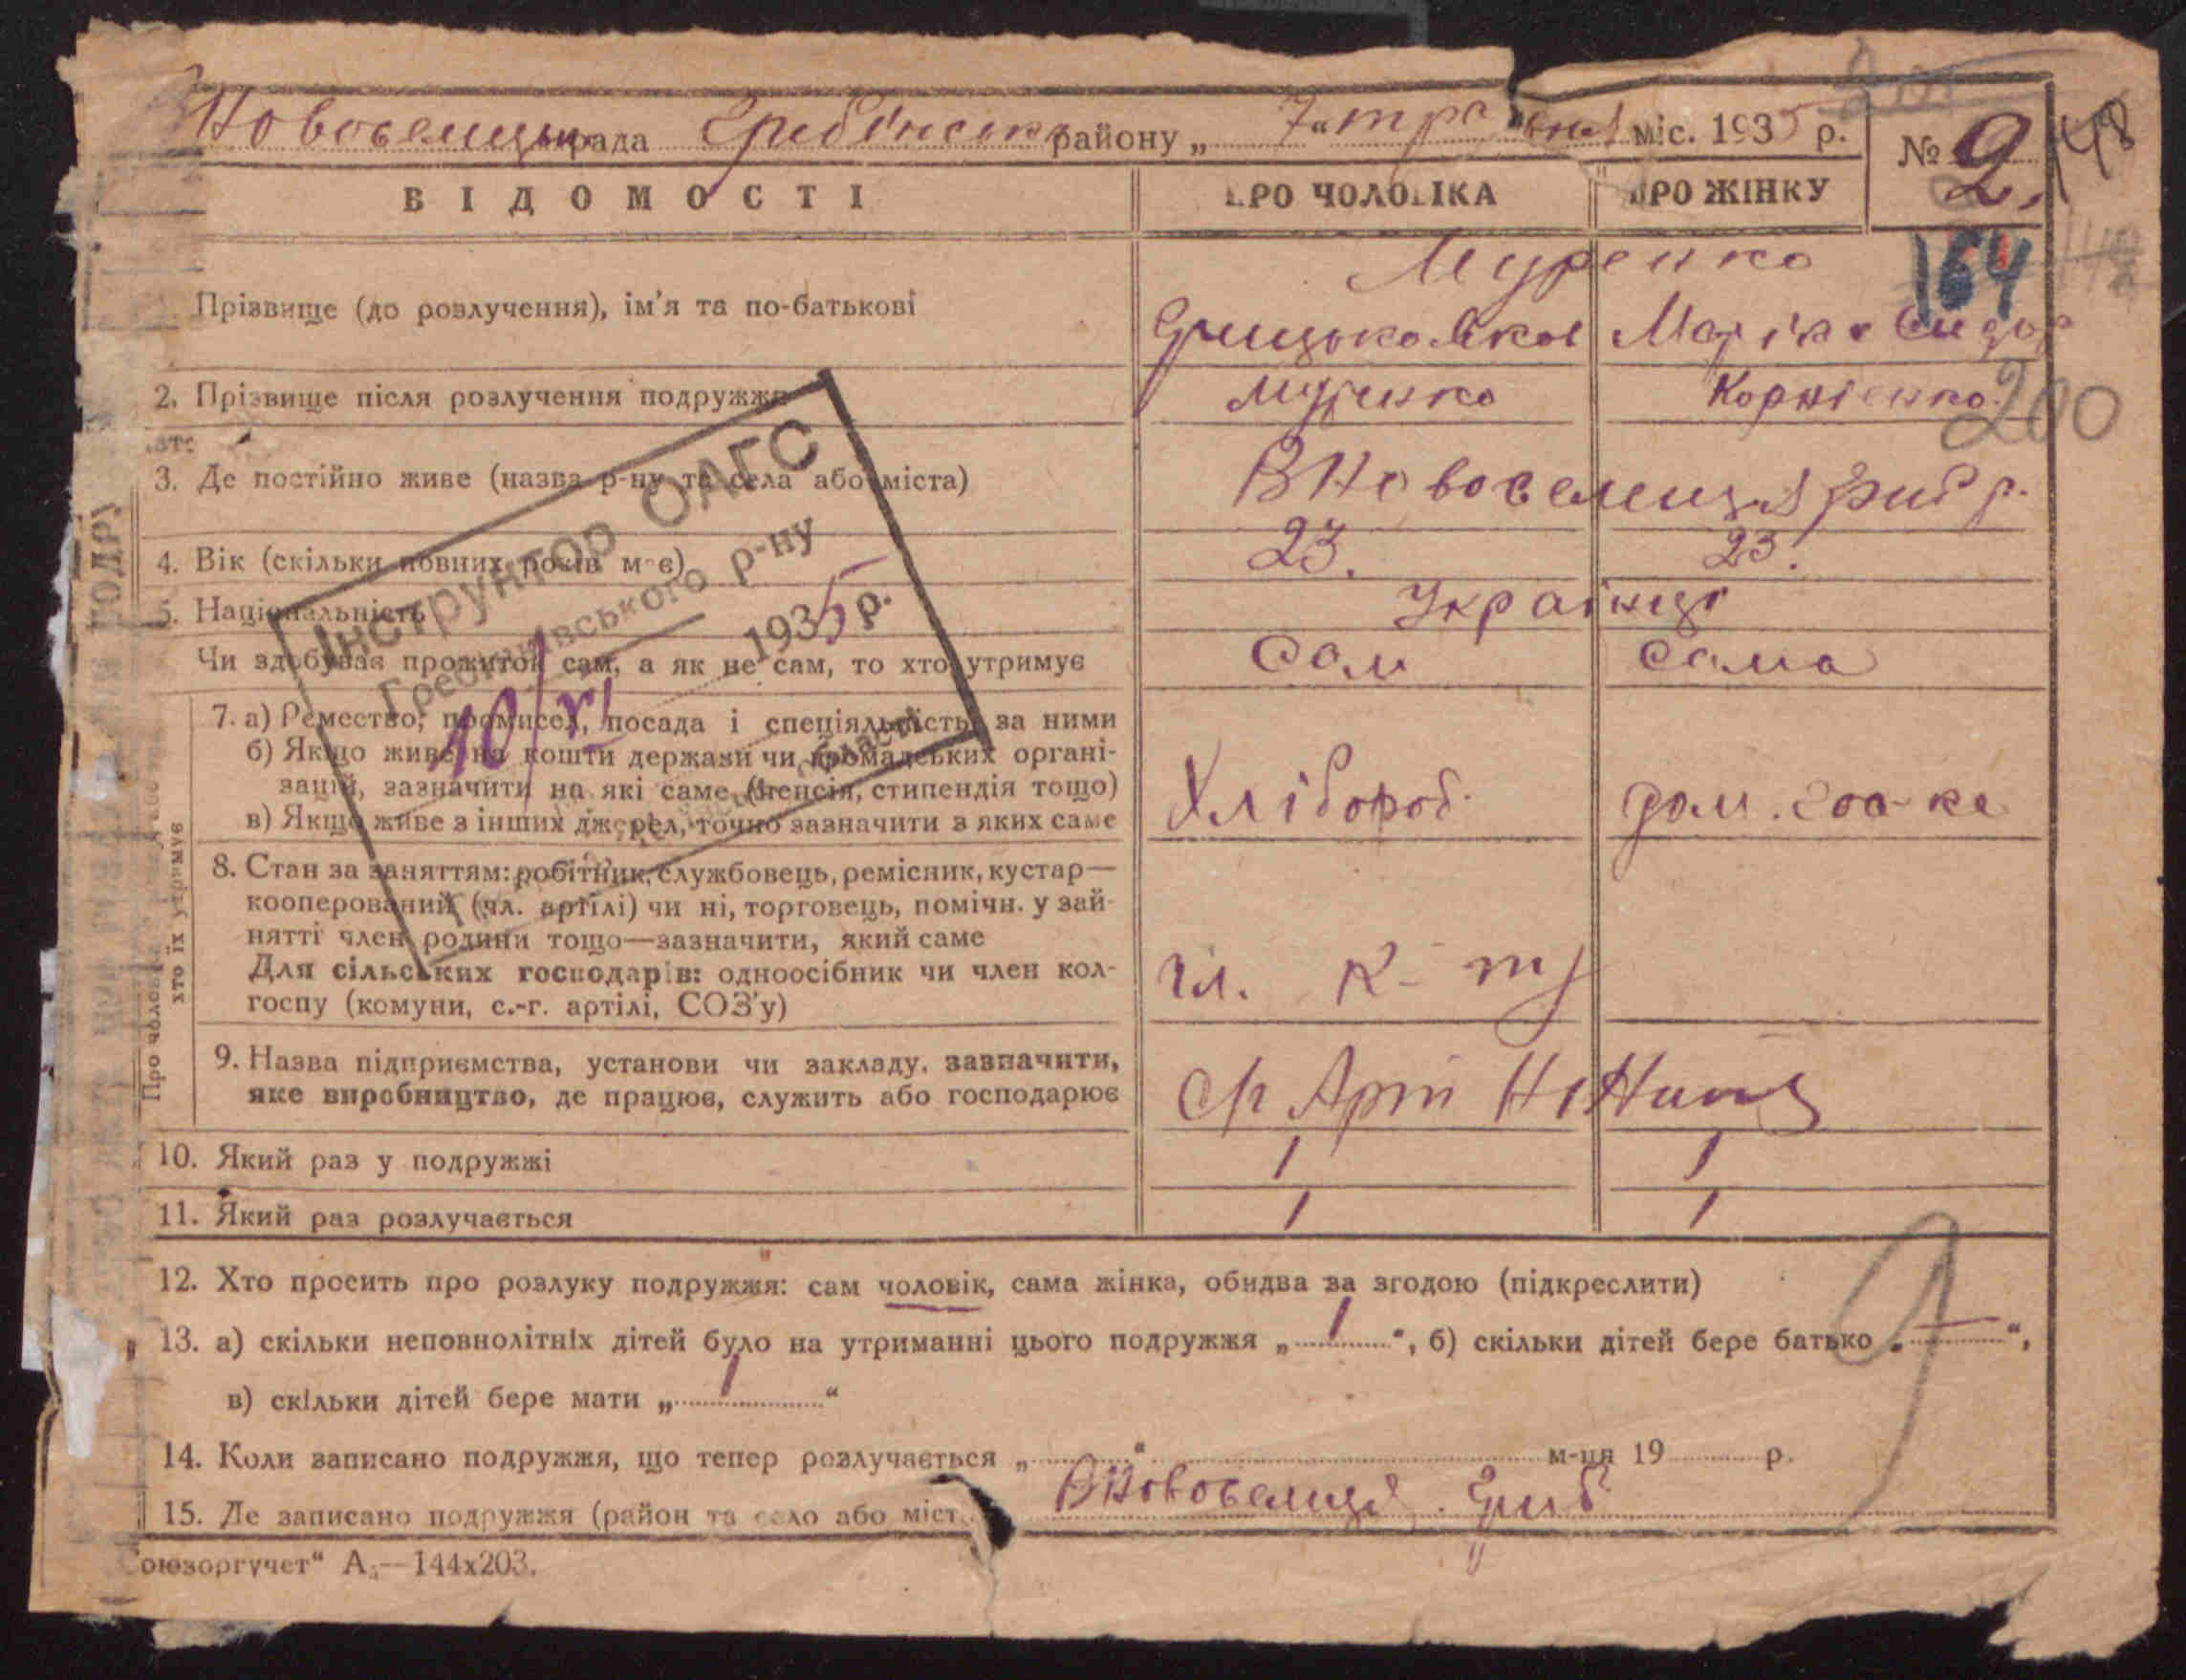 Новоселицька рада Гребінськ району „ 7 “ травня міс. 1935 р. № 2.
148
ВІДОМОСТІ ПРО ЧОЛОВІКА ПРО ЖІНКУ
Муренко
164
Прізвище (до розлучення), ім’я та по-батькові Грицько Яков Марія Сидор
2. Прізвище після розлучення подружжя Муренко Корнієнко
200
3. Де постійно живе (назва р-ну та села або міста) В Новоселиці Гриб р.
4. Вік (скільки повних років має) 23. 23.
5. Національність Українці
Чи здобуває прожиток сам, а як не сам, то хто утримує Сам Сама
Інструктор ОАГС
Гребінківського р-ну
1935 р.
10/VI
7. а) Ремество, промисел, посада і спеціяльність за ними
б) Якщо живе на кошти держави чи громадських органі-
зацій, зазначити на які саме (пенсія, стипендія тощо)
в) Якщо живе з інших джерел, точно зазначити з яких саме
Хлібороб дом. гос-ка
8. Стан за заняттям: робітник, службовець, ремісник, кустар—
кооперований (чл. артілі) чи ні, торговець, помічн. у зай-
нятті член родини тощо—зазначити, який саме
Для сільських господарів: одноосібник чи член кол-
госпу (комуни, с.-г. артілі, СОЗ’у)
чл. к-ту
9. Назва підприємства, установи чи закладу, зазначити,
яке виробництво, де працює, служить або господарює
Арт
10. Який раз у подружжі 1 1
11. Який раз розлучається 1 1
12. Хто просить про розлуку подружжя: сам чоловік, сама жінка, обидва за згодою (підкреслити)
13. а) скільки неповнолітніх дітей було на утриманні цього подружжя „ 1 “, б) скільки дітей бере батько „ — “,
в) скільки дітей бере мати „ 1 “
14. Коли записано подружжя, що тепер розлучається „ “ м-ця 19 р.
15. Де записано подружжя (район та село або міст В Новоселиці. Гриб
хто їх утримує
оюзоргучет“ А₅—144x203.